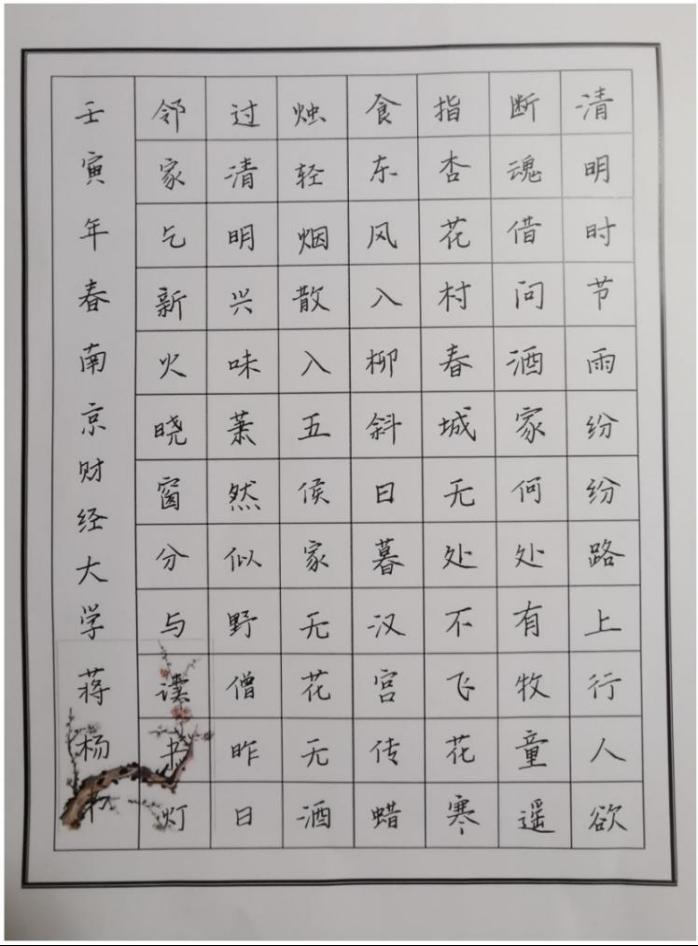 清明时节雨纷纷路上行人欲
断魂借问酒家何处有牧童遥
指杏花村春城无处不飞花寒
食东风入柳斜日暮汉宫传蜡
烛轻烟散入五侯家无花无酒
过清明兴味萧然似野僧昨日
邻家乞新火晓窗分与读书灯
壬寅年春南京财经大学蒋杨书